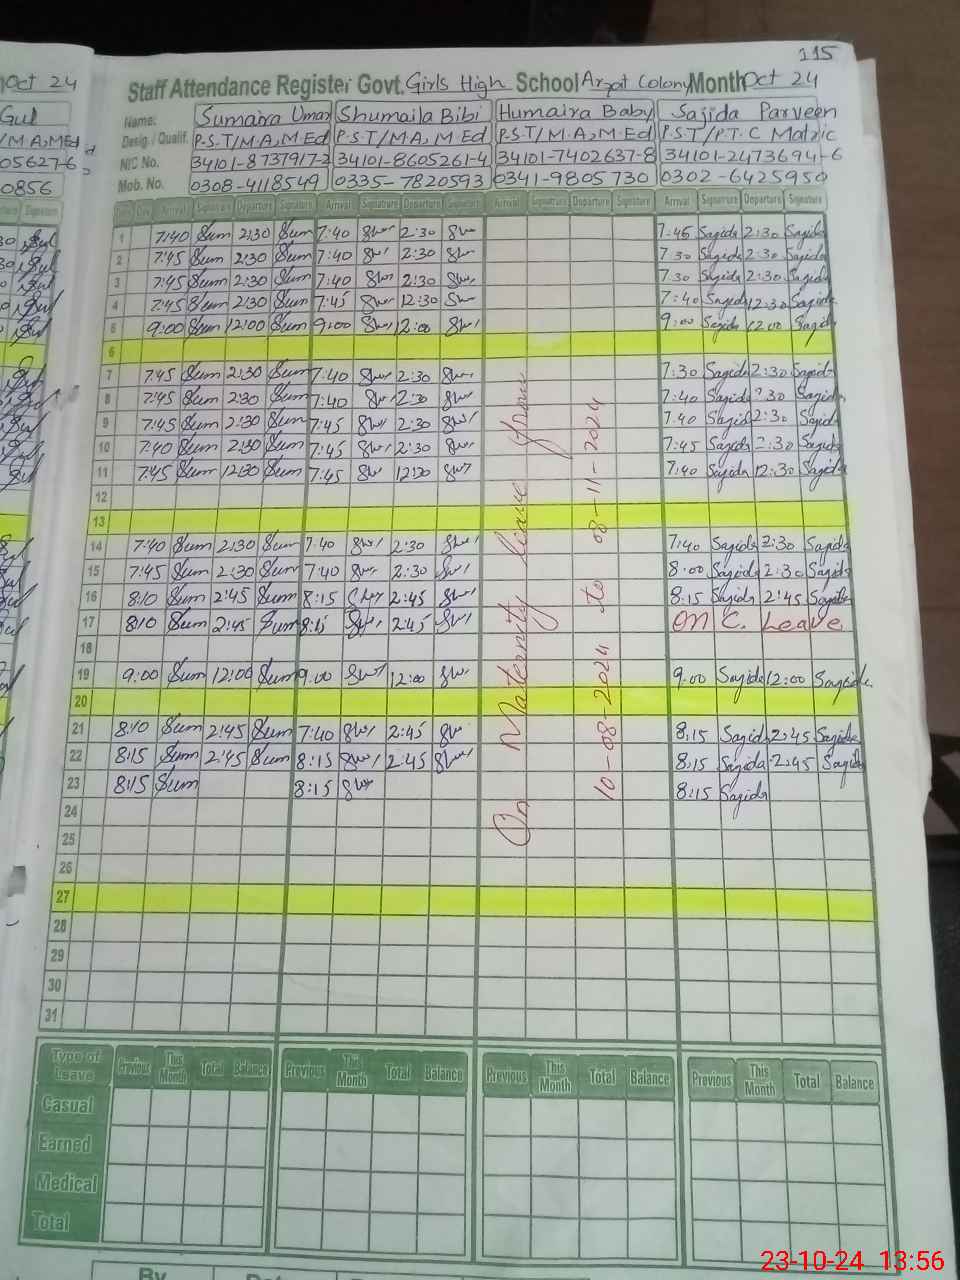 115
Oct 24
Staff Attendance Register Govt. Girls High School Colony Month Oct 24
Gul
Name: Sumaira Umar Shumaila Bibi Humaira Baby Sajida Parveen
/MA,MEd
Desig./ Qualif. P.S.T/M.A, M.Ed P.S.T/M.A, M.Ed P.S.T/M.A, M.Ed P.S.T/P.T.C Matric
05627-6
NIC No. 34101-8737917-2 34101-8605261-4 34101-7402637-8 34101-2473694-6
0856
Mob. No. 0308-4118549 0335-7820593 0341-9805730 0302-6425950
Signature
Date Day Arrival Signature Departure Signature Arrival Signature Departure Signature Arrival Signature Departure Signature Arrival Signature Departure Signature
1 7:40 Sum 2:30 Sum 7:40 2:30 7:45 Sajida 2:30 Sajida
2 7:45 Sum 2:30 Sum 7:40 2:30 7:30 Sajida 2:30 Sajida
3 7:45 Sum 2:30 Sum 7:40 2:30 7:30 Sajida 2:30 Sajida
4 7:45 Sum 2:30 Sum 7:45 12:30 7:40 Sajida 12:30 Sajida
5 9:00 Sum 12:00 Sum 9:00 12:00 9:00 Sajida 12:00 Sajida
6
7 7:45 Sum 2:30 Sum 7:40 2:30 7:30 Sajida 2:30 Sajida
8 7:45 Sum 2:30 Sum 7:40 2:30 7:40 Sajida 2:30 Sajida
9 7:45 Sum 2:30 Sum 7:45 2:30 7:40 Sajida 2:30 Sajida
10 7:40 Sum 2:30 Sum 7:45 2:30 7:45 Sajida 2:30 Sajida
11 7:45 Sum 12:30 Sum 7:45 12:30 7:40 Sajida 12:30 Sajida
12
13
14 7:40 Sum 2:30 Sum 7:40 2:30 7:40 Sajida 2:30 Sajida
15 7:45 Sum 2:30 Sum 7:40 2:30 8:00 Sajida 2:30 Sajida
16 8:10 Sum 2:45 Sum 8:15 2:45 8:15 Sajida 2:45 Sajida
17 8:10 Sum 2:45 Sum 8:15 2:45 On C. Leave
18
19 9:00 Sum 12:00 Sum 9:00 12:00 9:00 Sajida 12:00 Sajida
20
21 8:10 Sum 2:45 Sum 7:40 2:45 8:15 Sajida 2:45 Sajida
22 8:15 Sum 2:45 Sum 8:15 2:45 8:15 Sajida 2:45 Sajida
23 8:15 Sum 8:15 8:15 Sajida
24
25
26
27
28
29
30
31
On Maternity leave from
10-08-2024 to 08-11-2024
Type of Leave Previous This Month Total Balance Previous This Month Total Balance Previous This Month Total Balance Previous This Month Total Balance
Casual
Earned
Medical
Total
By
23-10-24 13:56